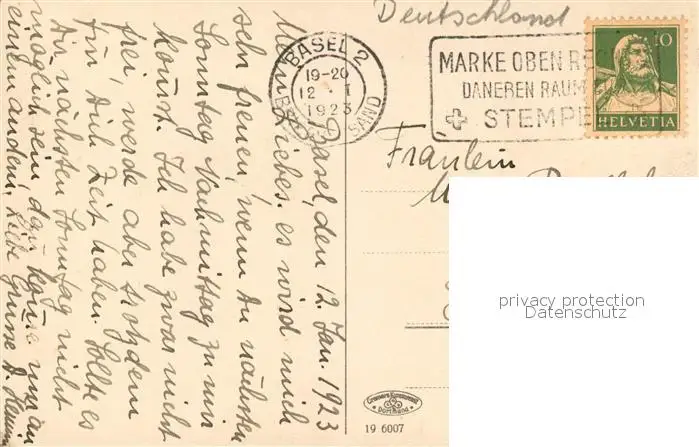 Deutschland
BASEL 2
19-20
12 I
1923
BRIEFVERSAND
MARKE OBEN RE
DANEBEN RAUM
STEMPE
10
HELVETIA
Fräulein
Basel, den 12. Jan. 1923
Mein Liebes. es wird mich
sehr freuen, wenn Du nächsten
Sonntag Nachmittag zu mir
komst. Ich habe zwar nicht
frei, werde aber trotzdem
für Dich Zeit haben. Sollte es
Dir nächsten Sonntag nicht
möglich sein, dan komme man an
einem andern. Liebe Grüsse D.
privacy protection
Datenschutz
Cramers Kunstanstalt
Dortmund
19 6007